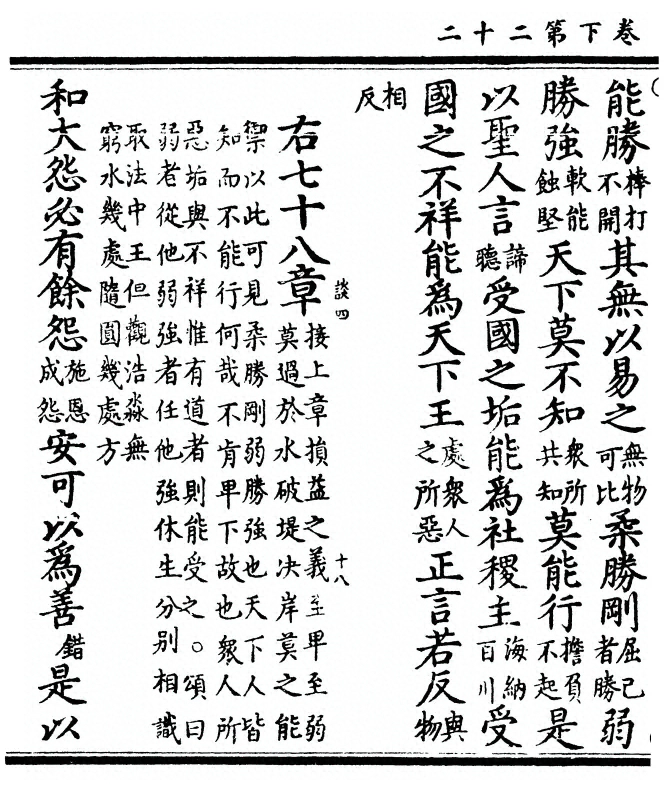 卷下第二十二
能勝棒打不開其無以易之無物可比柔勝剛屈己者勝弱
勝強軟能蝕堅天下莫不知衆所共知莫能行擔負不起是
以聖人言諦聽受國之垢能為社稷主海納百川受
國之不祥能為天下王處衆人之所惡正言若反與物
相反
談四 十八
右七十八章接上章損益之義至卑至弱
莫過於水破堤决岸莫之能
禦以此可見柔勝剛弱勝強也天下人皆
知而不能行何哉不肯卑下故也衆人所
惡垢與不祥惟有道者則能受之。頌曰
弱者從他弱強者任他強休生分別相識
取法中王但觀浩淼無
窮水幾處隨圓幾處方
和大怨必有餘怨施恩成怨安可以為善錯是以